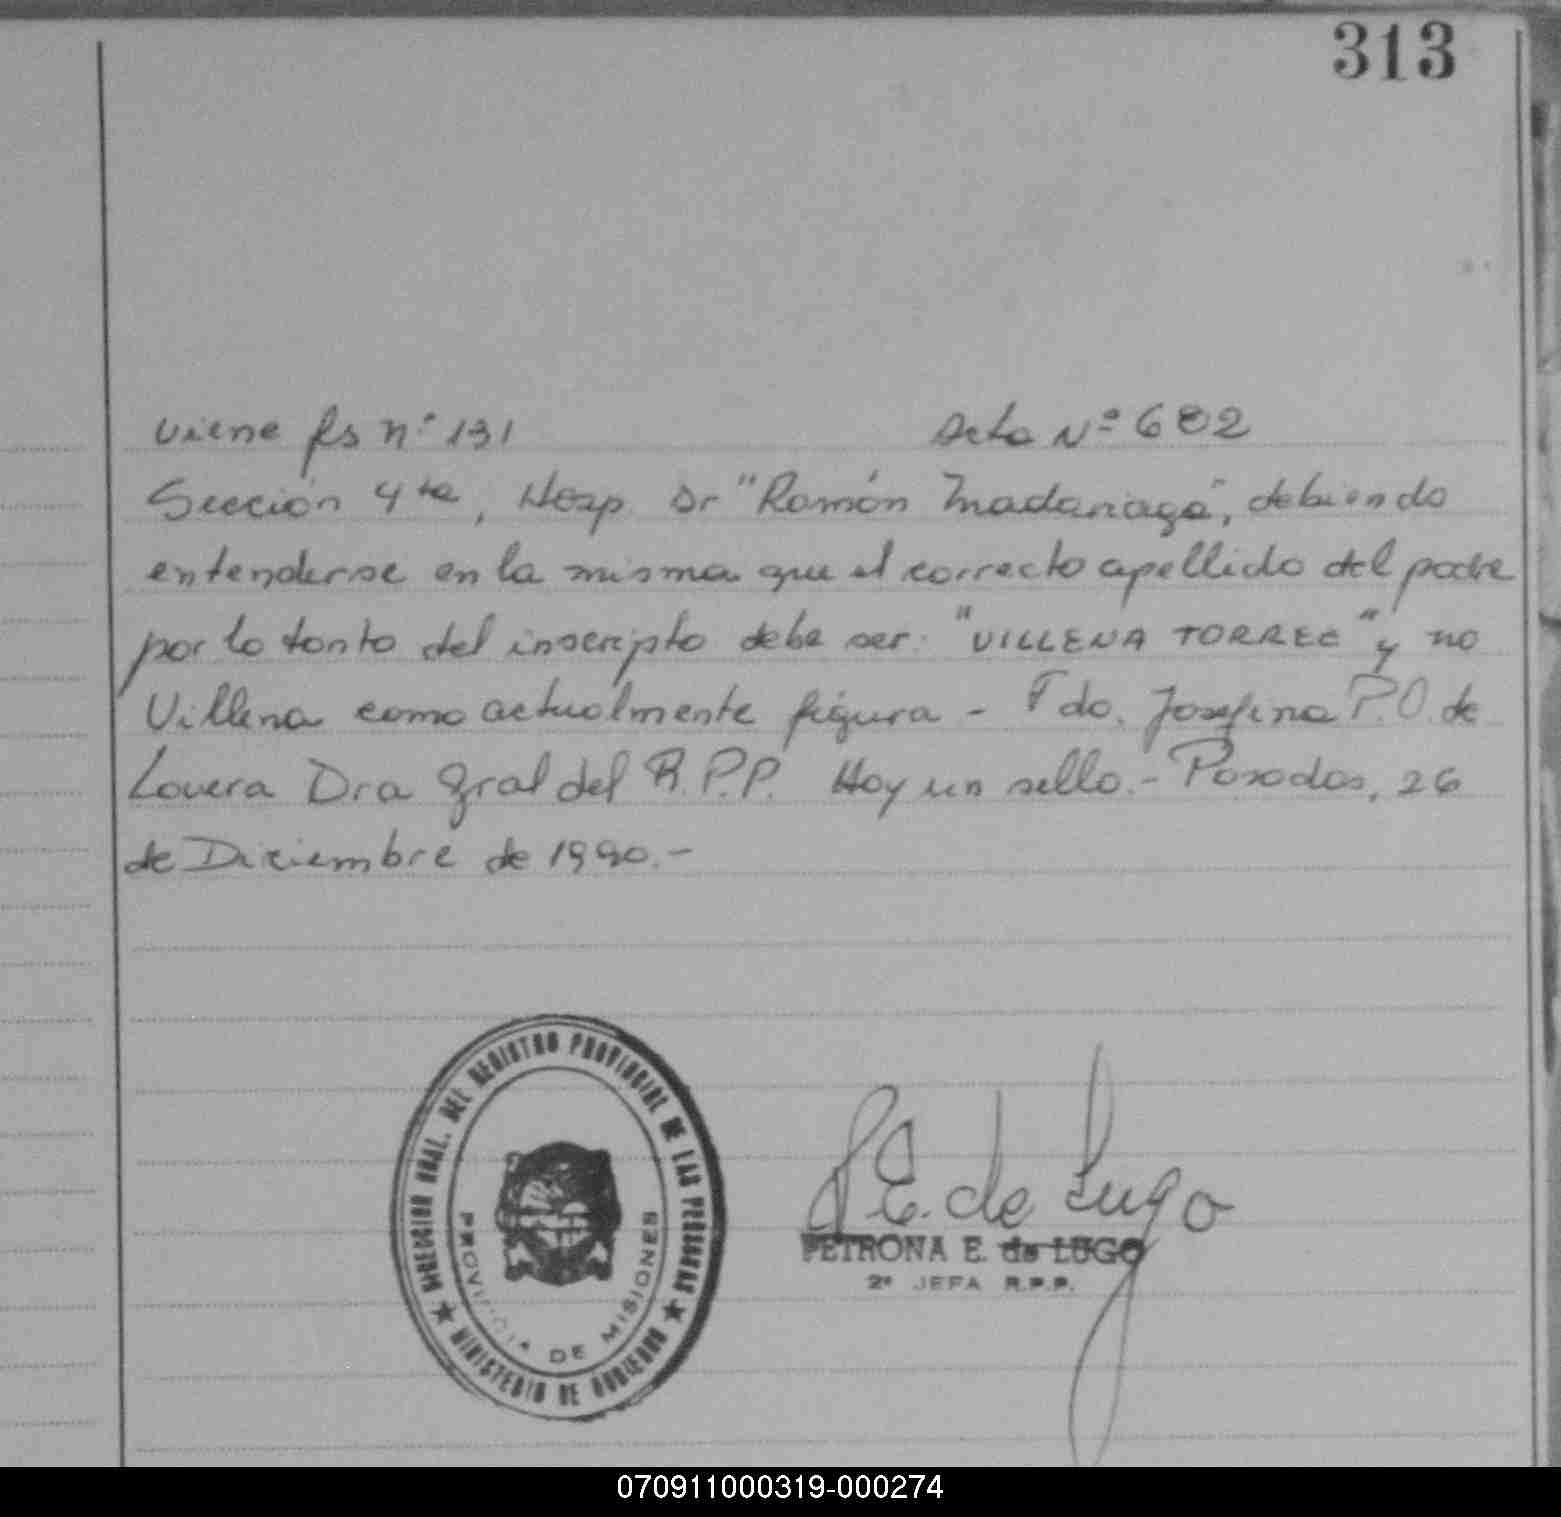 313
viene fs n° 131 Acta N° 682
Sección 4ta, Hosp. Dr "Ramón Madariaga", debiendo
entenderse en la misma que el correcto apellido del padre
por lo tanto del inscripto debe ser: "VILLENA TORREZ" y no
Villena como actualmente figura - Fdo. Josefina P.O. de
Lovera Dra Gral del R.P.P. Hay un sello.- Posadas, 26
de Diciembre de 1990.-
DIRECCION GRAL. DEL REGISTRO PROVINCIAL DE LAS PERSONAS
PROVINCIA DE MISIONES
MINISTERIO DE GOBIERNO
P.E. de Lugo
PETRONA E. de LUGO
2° JEFA R.P.P.
070911000319-000274